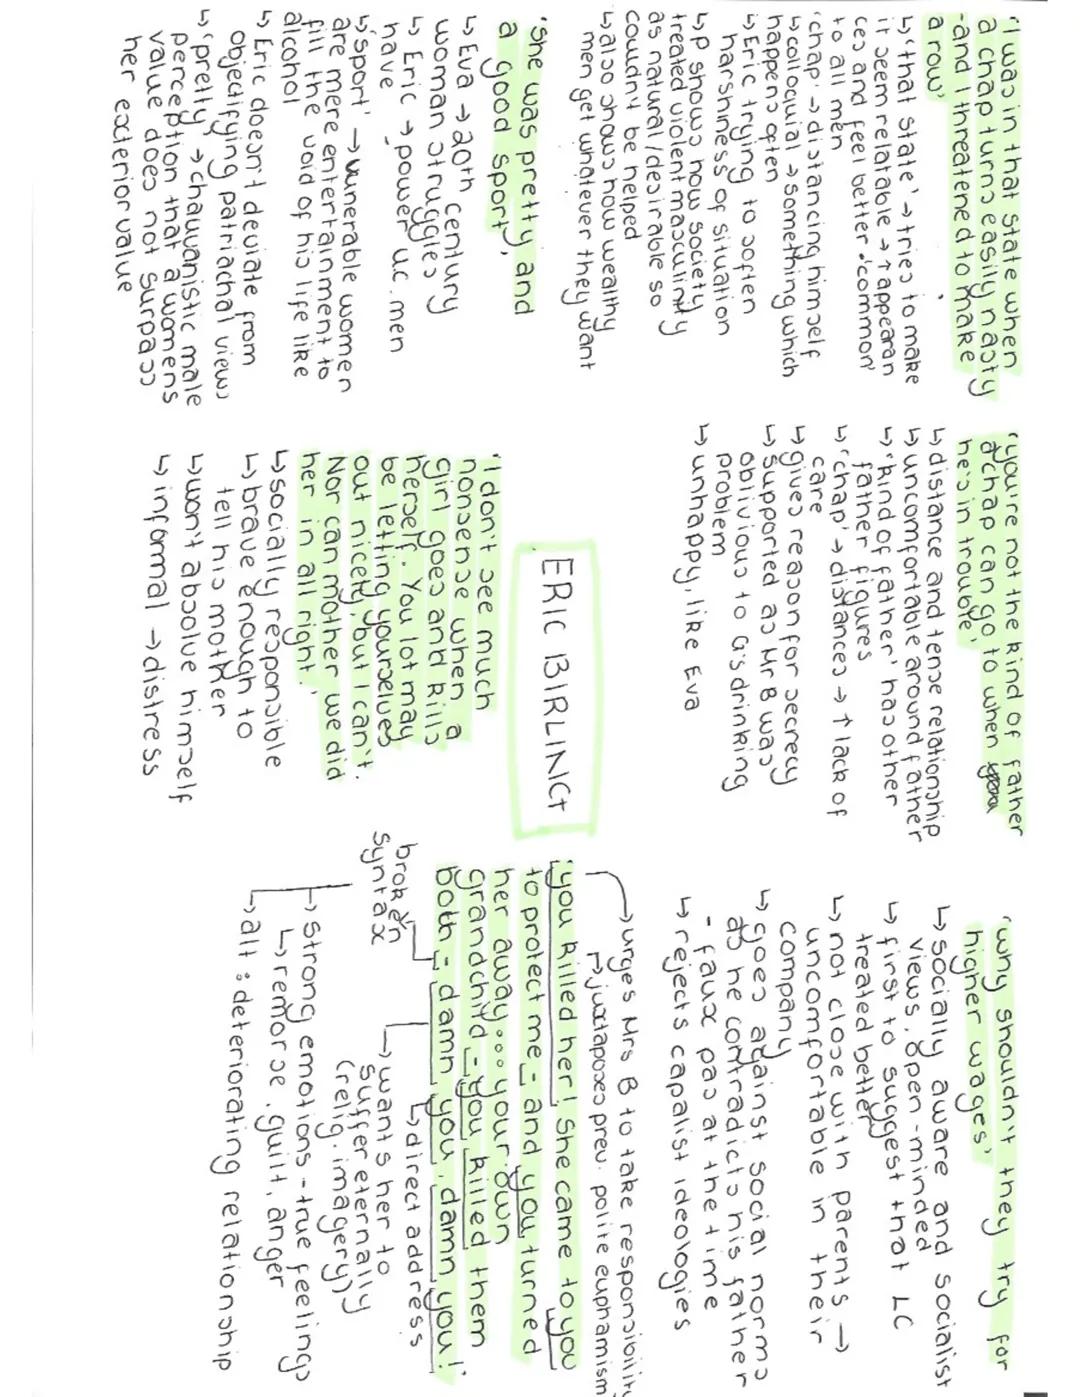 'I was in that state when
a chap turns easily nasty
-and I threatened to make
a row'
↳ 'that state' → tries to make
it seem relatable → ↑ appearan
ces and feel better. 'common'
to all men
'chap' → distancing himself
↳ colloquial → something which
happens often
↳ Eric trying to soften
harshness of situation
↳ P shows how society
treated violent masculinity
as natural/desirable so
couldn't be helped
↳ also shows how wealthy
men get whatever they want
'she was pretty, and
a good sport'
↳ Eva → 20th century
woman struggles
↳ Eric → power uc. men
have
↳ 'sport' → vunerable women
are mere entertainment to
fill the void of his life like
alcohol
↳ Eric doesn't deviate from
objectifying patriachal views
↳ 'pretty' → chauvanistic male
perception that a womens
value does not surpass
her exterior value
'you're not the kind of father
a chap can go to when
he's in trouble'
↳ distance and tense relationship
↳ uncomfortable around father
↳ 'kind of father' has other
father figures
↳ 'chap' → distances → ↑ lack of
care
↳ gives reason for secrecy
↳ supported as Mr B was
oblivious to G's drinking
problem
↳ unhappy, like Eva
ERIC BIRLING
'I don't see much
nonsense when a
girl goes and kills
herself. You lot may
be letting yourselves
out nicely, but I can't.
Nor can mother we did
her in all right.'
↳ socially responsible
↳ brave enough to
tell his mother
↳ won't absolve himself
↳ informal → distress
'why shouldn't they try for
higher wages'
↳ socially aware and socialist
views, open-minded
↳ first to suggest that LC
treated better
↳ not close with parents →
uncomfortable in their
company
↳ goes against social norms
as he contradicts his father
- faux pas at the time
↳ rejects capalist ideologies
→ urges Mrs B to take responsibility
↱ juxtaposes prev. polite euphamism
'you killed her! she came to you
to protect me - and you turned
her away... your own
grandchild - you killed them
both - damn you, damn you!'
broken
syntax
↳ direct address
↳ wants her to
suffer eternally
(relig. imagery)
↳ strong emotions - true feelings
↳ remorse, guilt, anger
↳ alt: deteriorating relationship